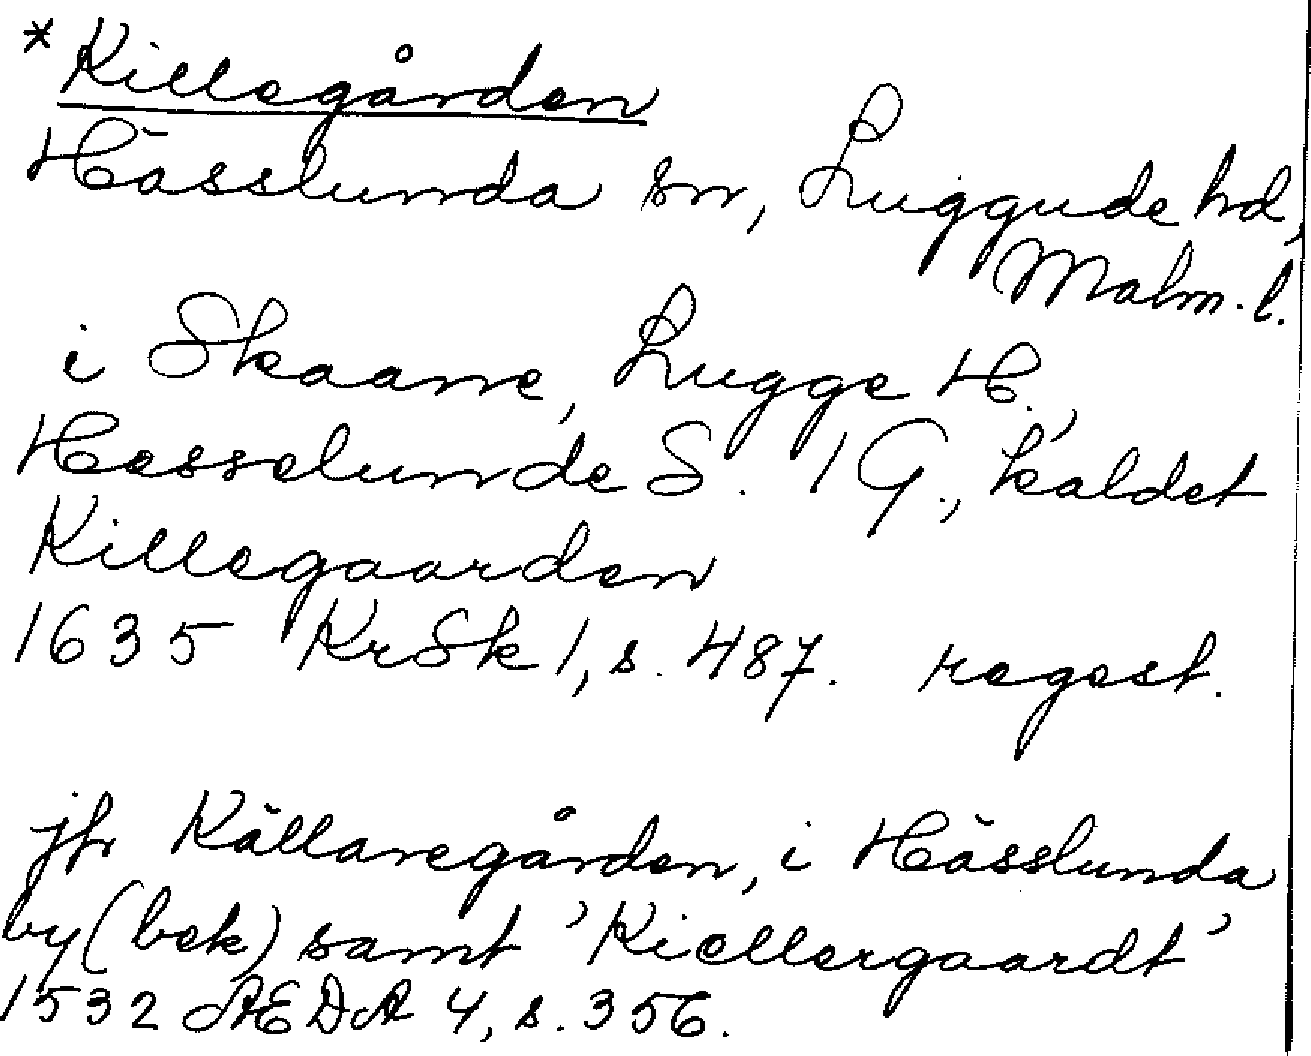 *Killegården
Hässlunda sn, Luggude hd,
Malm. l.
i Skaane, Lugge H.,
Hesselunde S. 1 G., kaldet
Killegaarden
1635 KrSk 1, s. 487. regest.
jfr Källaregården, i Hässlunda
by (bek) samt 'Kiellergaardt'
1532 AEDA 4, s. 356.